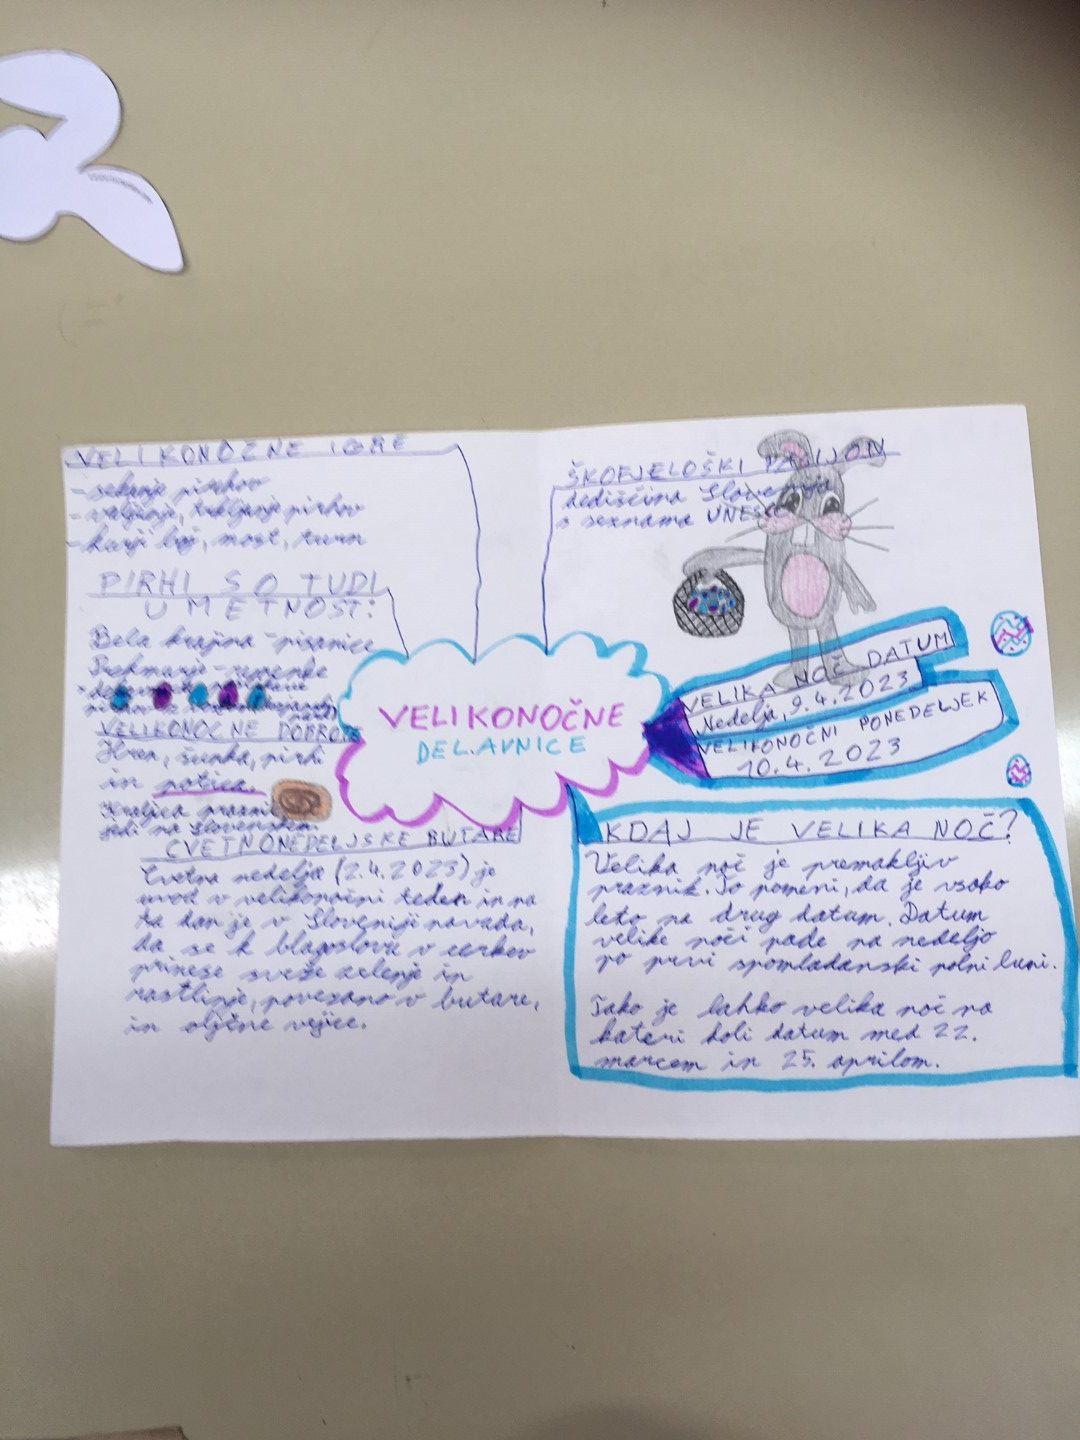 VELIKONOČNE IGRE
- sekanje pirhov
- valjanje, trkljanje pirhov
- turji boj, most, turn
PIRHI SO TUDI
UMETNOST:
Bela krajina - pisanice
Prekmurje - remenke
VELIKONOČNE DOBROTE
Hren, šunka, pirhi
in potica.
Kraljica praznične
jedi na Slovenskem
CVETNONEDELJSKE BUTARE
Cvetna nedelja (2.4.2023) je
uvod v velikonočni teden in na
ta dan je v Sloveniji navada,
da se k blagoslovu v cerkev
prinese sveže zelenje in
rastlinje, povezano v butare,
in oljčne vejice.
VELIKONOČNE
DELAVNICE
ŠKOFJELOŠKI PASIJON
dediščina Slovenije
s seznama UNESCO
VELIKA NOČ DATUM
Nedelja, 9.4.2023
VELIKONOČNI PONEDELJEK
10.4.2023
KDAJ JE VELIKA NOČ?
Velika noč je premakljiv
praznik. To pomeni, da je vsako
leto na drug datum. Datum
velike noči pade na nedeljo
po prvi spomladanski polni luni.
Tako je lahko velika noč na
kateri koli datum med 22.
marcem in 25. aprilom.